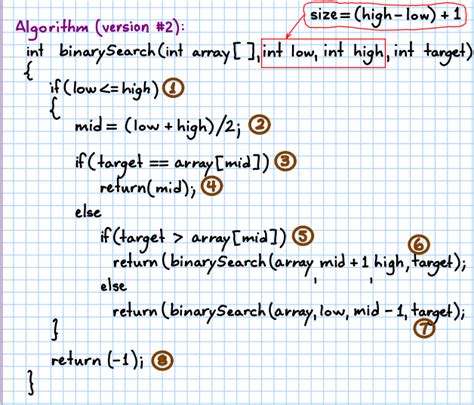 size=(high-low)+1
Algorithm (version #2):
int binarySearch(int array[ ], int low, int high, int target)
{
if(low<=high) 1
{
mid = (low + high)/2; 2
if(target == array[mid]) 3
return(mid); 4
else
if(target > array[mid]) 5
return (binarySearch(array mid + 1 high, target); 6
else
return (binarySearch(array, low, mid - 1, target); 7
}
return (-1); 8
}